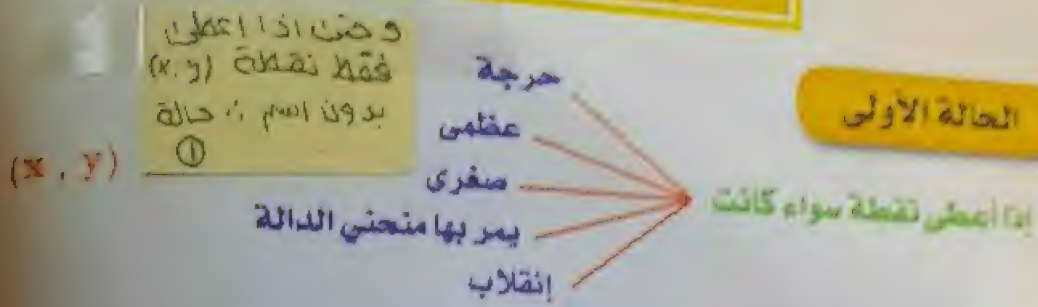 الحالة الأولى
إذا أعطى نقطة سواء كانت
حرجة
عظمى
صغرى
يمر بها منحني الدالة
إنقلاب
(x , y)
و حتى اذا اعطى
فقط نقطة (x, y)
بدون اسم ∴ حالة
①